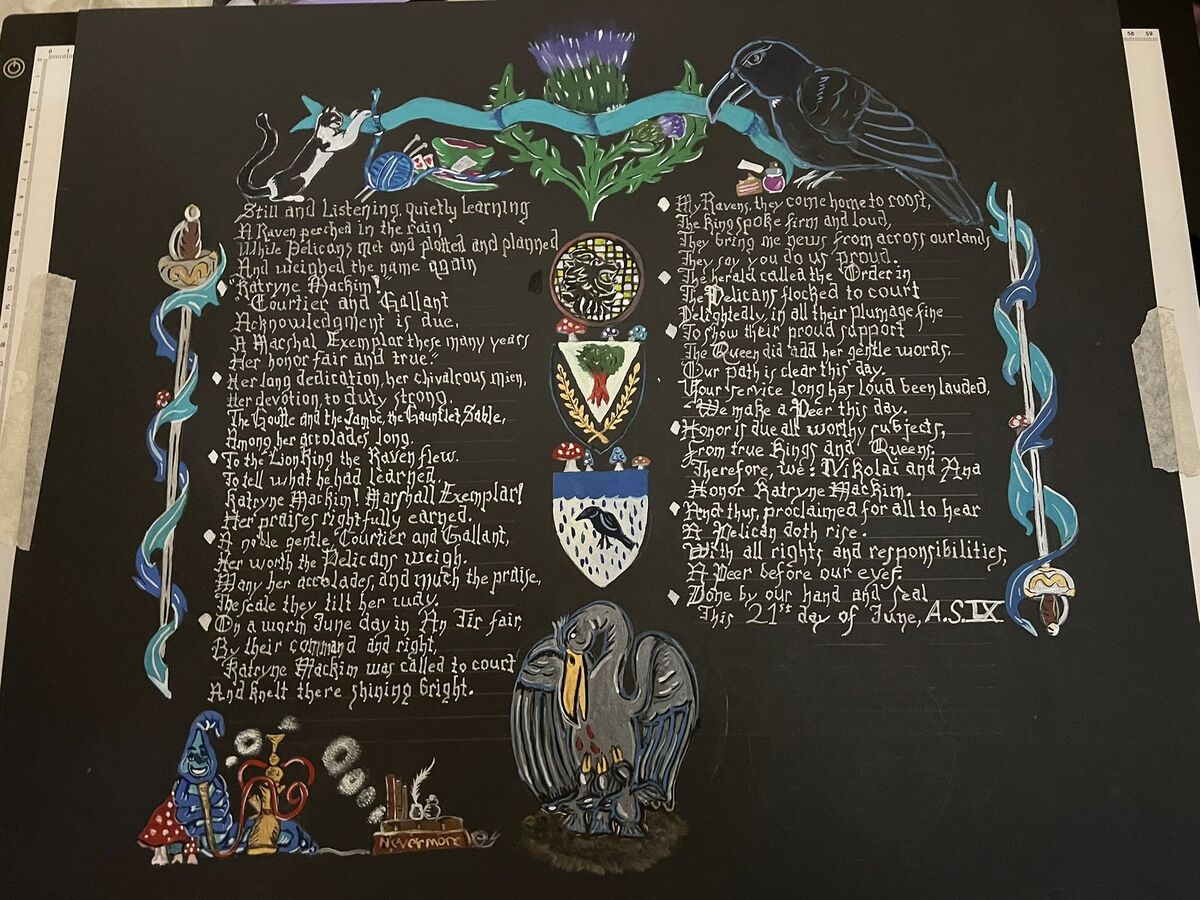 Still and Listening, quietly learning
A Raven perched in the rain
While Pelicans met and plotted and planned
And weighed the name again
"Katryne MacKim!"
"Courtier and Gallant
Acknowledgment is due,
A Marshal Exemplar these many years
Her honor fair and true."
Her long dedication, her chivalrous mien,
Her devotion to duty strong,
The Goutte and the Jambe, the Gauntlet Sable,
Among her accolades long.
To the Lion King the Raven flew.
To tell what he had learned.
Katryne MacKim! Marshall Exemplar!
Her praises rightfully earned.
A noble gentle, Courtier and Gallant,
Her worth the Pelicans weigh.
Many her accolades, and much the praise,
The scale they tilt her way.
On a warm June day in An Tir fair,
By their command and right,
Katryne MacKim was called to court
And knelt there shining bright.
My Ravens, they come home to roost,
The King spoke firm and loud,
They bring me news from across our lands
They say you do us proud.
The herald called the Order in
The Pelicans flocked to court
Delightedly, in all their plumage fine
To show their proud support
The Queen did add her gentle words,
Our path is clear this day.
Your service long has loud been lauded,
We make a Peer this day.
Honor is due all worthy subjects,
from true Kings and Queens.
Therefore, we: Nikolai and Ana
Honor Katryne MacKim.
And thus, proclaimed for all to hear
A Pelican doth rise.
With all rights and responsibilities,
A Peer before our eyes.
Done by our hand and seal
This 21st day of June, A.S. IX
Nevermore